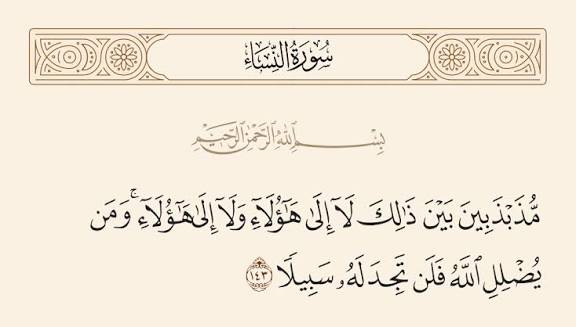 سُورَةُ النِّسَاءِ
بِسْمِ ٱللَّهِ ٱلرَّحْمَٰنِ ٱلرَّحِيمِ
مُّذَبْذَبِينَ بَيْنَ ذَٰلِكَ لَآ إِلَىٰ هَٰٓؤُلَآءِ وَلَآ إِلَىٰ هَٰٓؤُلَآءِ ۚ وَمَن
يُضْلِلِ ٱللَّهُ فَلَن تَجِدَ لَهُۥ سَبِيلًا ١٤٣